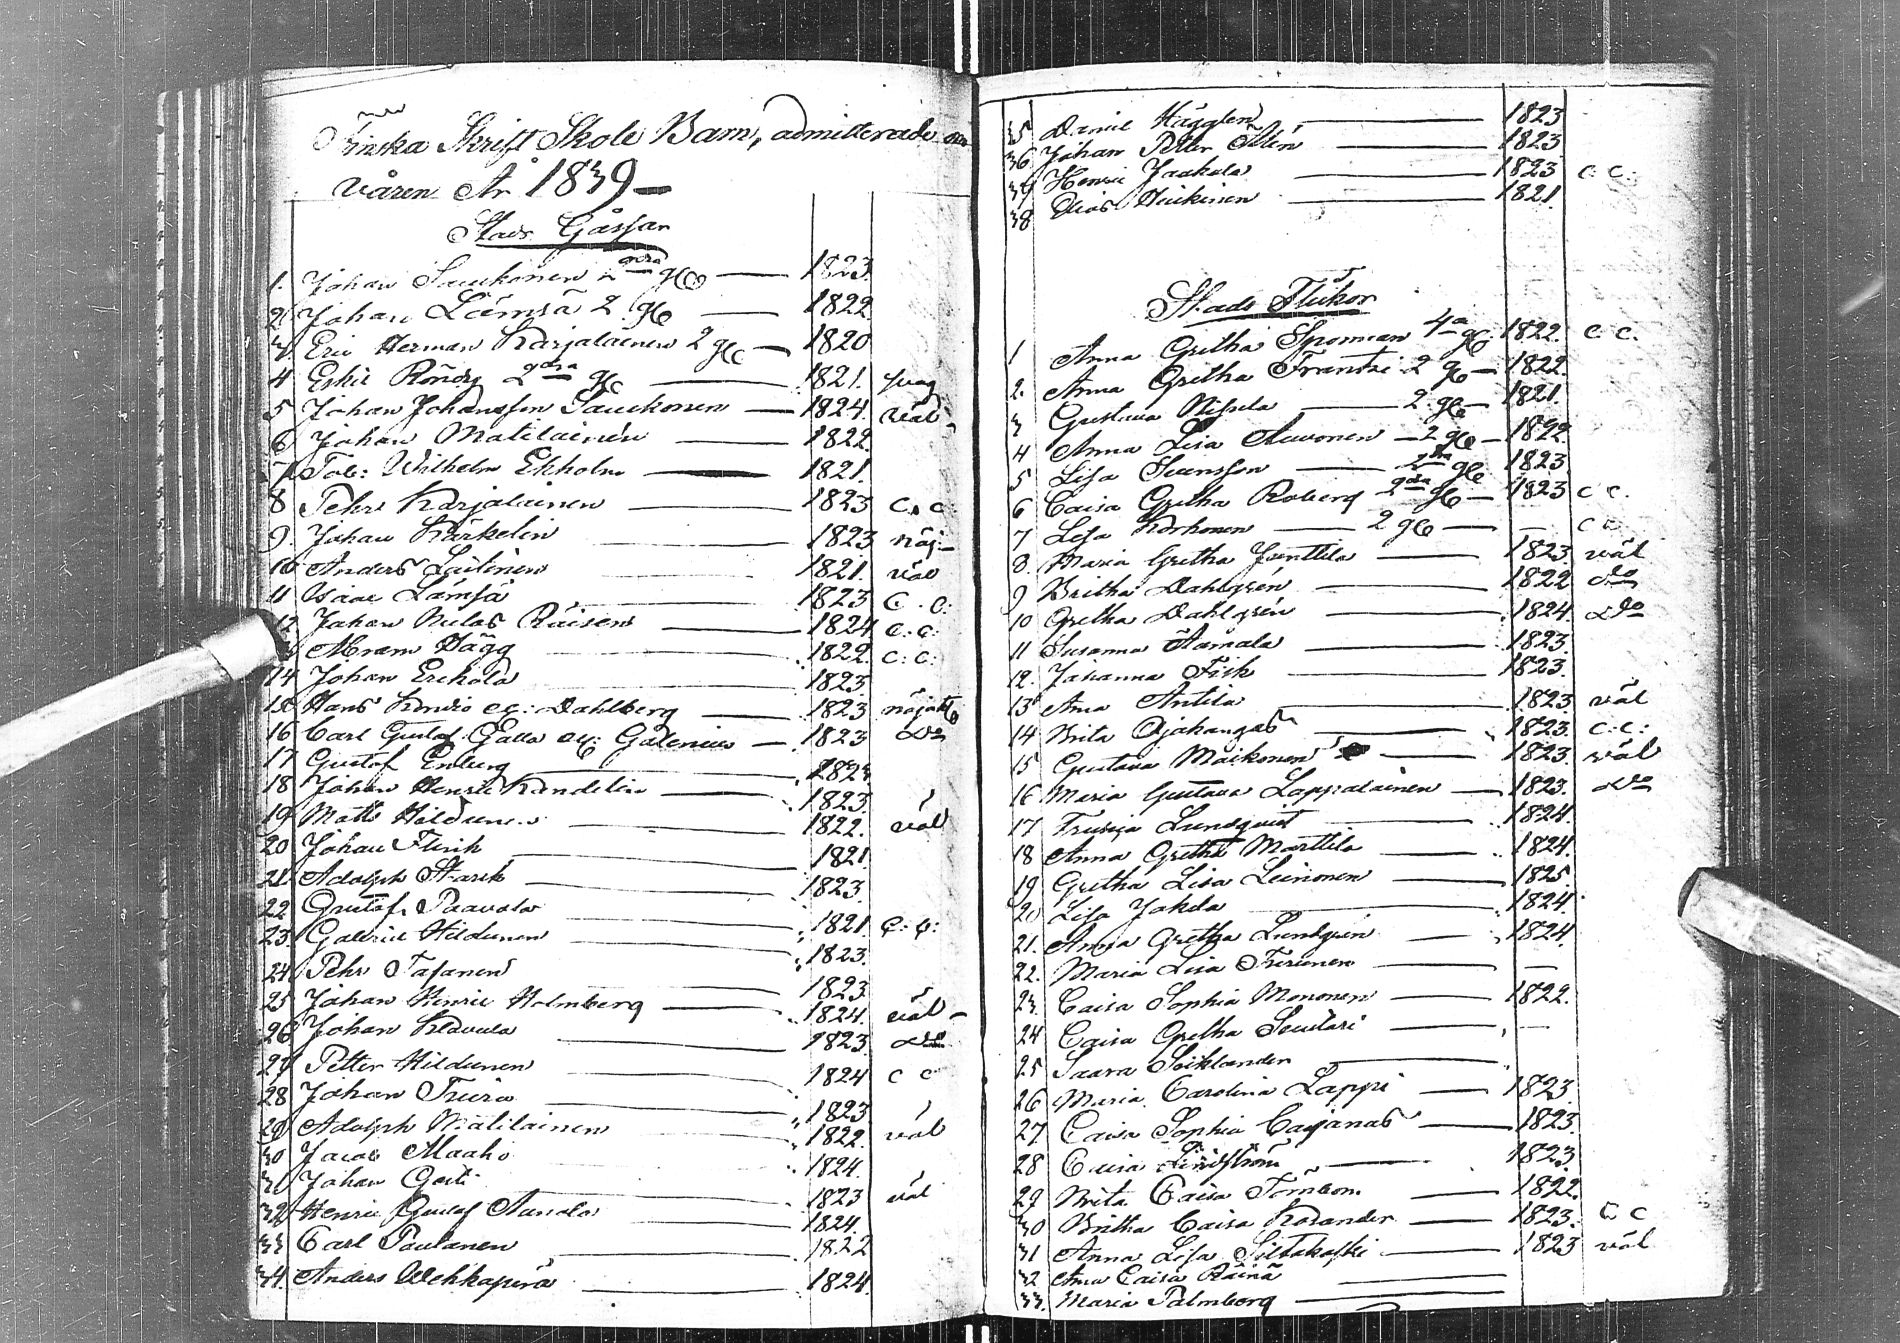 Finska Skrift Skole Barn, admitterade om
våren År 1839
Stads Gåssar
1. Johan Saukonen 2dra gg 1823
2. Johan Lämsä 2 gg 1822
3. Eric Herman Karjalainen 2 gg 1820
4 Eskil 2dra gg 1821. svag
5 Johan Johansson Saukonen 1824. väl
6 Johan Matilainen 1822
7 Tob: Wilhelm Ekholm 1821.
8 Pehr Karjalainen 1823 c. c:
9. Johan Kärkelin 1823 nöj
10 Anders Laitinen 1821. väl
11 Isaac Lämsä 1823 C. C:
12 Johan Niclas Räisen 1824 c: c:
Abram Hägg 1822. c: c:
14 Johan Erckola 1823
15 Hans Kondio eg: Dahlberg 1823 nöjakt
16 Carl Gustaf Galla eg: Galenius 1823 do
17 Gustaf Enberg 1823
18 Johan Henric Kandelin 1823.
19 Matts Hildunen 1822. väl
20 Johan Flink 1821
21. Adolph Starck 1823.
22 Gustaf Paavola
23. Gabriel Hildunen 1821 c: c:
24 Pehr Tasanen 1823.
25 Johan Henric Holmberg 1823
26 Johan Klavula 1824. väl
27 Petter Hildunen 1823. do
28 Johan Tuira 1824 c c
29 Adolph Matilainen 1823
30 Jacob Maaho 1822. väl
31 Johan 1824.
32 Henric Gustaf Aunola 1823 väl
33 Carl Paulanen 1824.
34. Anders Wehkaperä 1822
1824.
35 Daniel Hägglen 1823
36 Johan Petter Tolén 1823
37 Henric Jaakola 1823 c c:
38 Elias Heikinen 1821
Stads Flickor
1 Anna Gretha Sponnian 4a gg 1822. c. c.
2. Anna Gretha Frantsi 2 gg 1822.
3 Gustava Nissela 2 gg 1821.
4 Anna Lisa Auvonen 2 gg 1822
5 Lisa Svensson 2dra gg 1823
6 Caisa Gretha Roberg 2dra gg 1823 c c.
7 Lisa Korhonen 2 gg — c c.
8. Maria Gretha Junttila 1823. väl
9 Britha Dahlgrén 1822 do
10 Gretha Dahlgrén 1824. do
11 Susanna Alamala 1823.
12. Johanna Fisk 1823.
13 Ana Antila 1823. väl
14 Brita Ojakangas 1823. c: c:
15 Gustava Moikonen 1823. väl
16 Maria Gustava Lappalainen 1823. do
17 Lundquist 1824.
18 Anna Gretha Marttila 1824.
19 Gretha Lisa Leinonen 1825
20 Lisa Jokela 1824.
21. Anna Gretha Lundgrén 1824.
22. Maria Lisa —
23. Caisa Sophia Mononen 1822.
24 Caisa Gretha —
25 Saara Siklander
26 Maria Carolina Lappi 1823.
27 Caisa Sophia Cajanas 1823.
28 Caisa Lindström 1823
29 Brita Caisa Tombom 1822.
30 Britha Caisa Kosander 1823. C C
31 Anna Lisa Siltakoski 1823 väl
32 Ana Caisa Räinä
33. Maria Palmberg